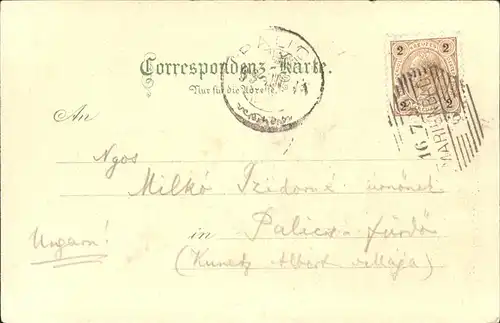 Correspondenz-Karte.
Nur für die Adresse.
An
Ngos
Milkó Izidorné úrnőnek
Ungarn!
in Palics-fürdő
(Kunetz Albert villája)
2 2
2 2
16 7
PALICS